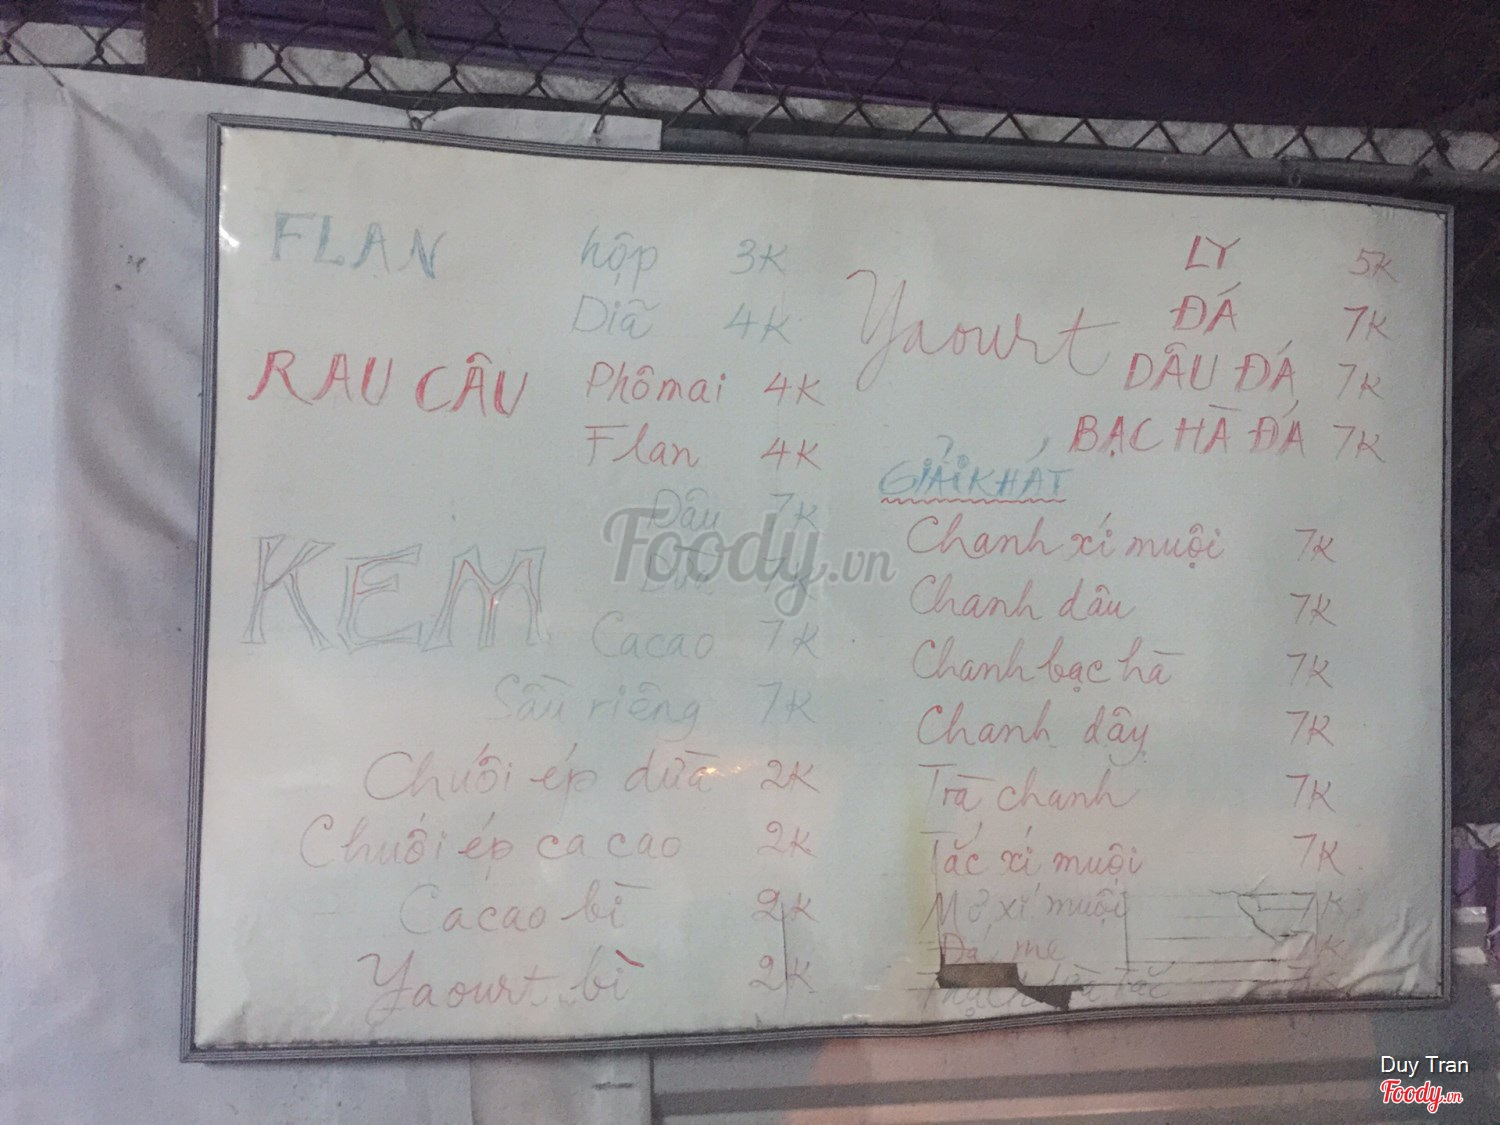 FLAN hộp 3K
Diã 4K
RAU CÂU Phômai 4K
Flan 4K
KEM
Dâu 7K
7K
Cacao 7K
Sầu riêng 7K
Chuối ép dừa 2K
Chuối ép ca cao 2K
Cacao bì 2K
Yaourt bì 2K
Yaourt
LY 5K
ĐÁ 7K
DÂU ĐÁ 7K
BẠC HÀ ĐÁ 7K
GIẢI KHÁT
Chanh xí muội 7K
Chanh dâu 7K
Chanh bạc hà 7K
Chanh dây 7K
Trà chanh 7K
Tắc xí muội 7K
Mơ xí muội 7K
Đá me 7K
tắc
Foody.vn
Duy Tran
Foody.vn